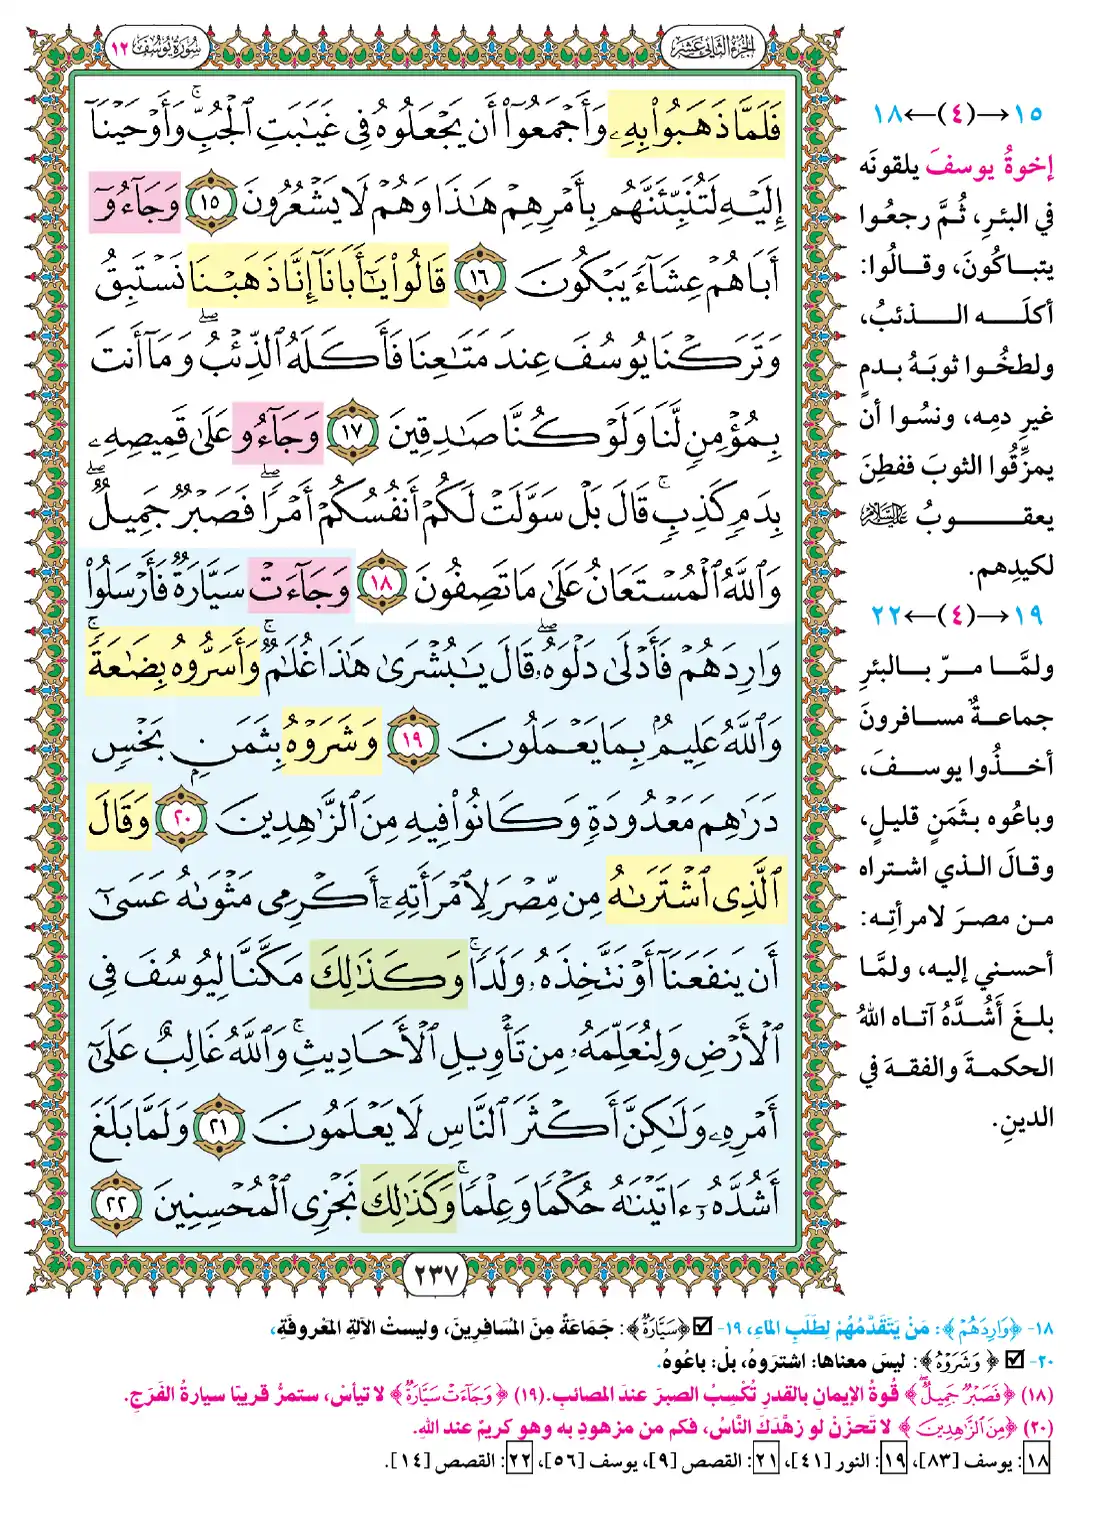 الجزء الثاني عشر
سورة يوسف ١٢
فَلَمَّا ذَهَبُوا۟ بِهِۦ وَأَجْمَعُوٓا۟ أَن يَجْعَلُوهُ فِى غَيَـٰبَتِ ٱلْجُبِّ ۚ وَأَوْحَيْنَآ
إِلَيْهِ لَتُنَبِّئَنَّهُم بِأَمْرِهِمْ هَـٰذَا وَهُمْ لَا يَشْعُرُونَ ١٥ وَجَآءُوٓ
أَبَاهُمْ عِشَآءً يَبْكُونَ ١٦ قَالُوا۟ يَـٰٓأَبَانَآ إِنَّا ذَهَبْنَا نَسْتَبِقُ
وَتَرَكْنَا يُوسُفَ عِندَ مَتَـٰعِنَا فَأَكَلَهُ ٱلذِّئْبُ ۖ وَمَآ أَنتَ
بِمُؤْمِنٍ لَّنَا وَلَوْ كُنَّا صَـٰدِقِينَ ١٧ وَجَآءُو عَلَىٰ قَمِيصِهِۦ
بِدَمٍ كَذِبٍ ۚ قَالَ بَلْ سَوَّلَتْ لَكُمْ أَنفُسُكُمْ أَمْرًا ۖ فَصَبْرٌ جَمِيلٌ ۖ
وَٱللَّهُ ٱلْمُسْتَعَانُ عَلَىٰ مَا تَصِفُونَ ١٨ وَجَآءَتْ سَيَّارَةٌ فَأَرْسَلُوا۟
وَارِدَهُمْ فَأَدْلَىٰ دَلْوَهُۥ ۖ قَالَ يَـٰبُشْرَىٰ هَـٰذَا غُلَـٰمٌ ۚ وَأَسَرُّوهُ بِضَـٰعَةً ۚ
وَٱللَّهُ عَلِيمٌۢ بِمَا يَعْمَلُونَ ١٩ وَشَرَوْهُ بِثَمَنٍۭ بَخْسٍ
دَرَٰهِمَ مَعْدُودَةٍ وَكَانُوا۟ فِيهِ مِنَ ٱلزَّٰهِدِينَ ٢٠ وَقَالَ
ٱلَّذِى ٱشْتَرَىٰهُ مِن مِّصْرَ لِٱمْرَأَتِهِۦٓ أَكْرِمِى مَثْوَىٰهُ عَسَىٰٓ
أَن يَنفَعَنَآ أَوْ نَتَّخِذَهُۥ وَلَدًا ۚ وَكَذَٰلِكَ مَكَّنَّا لِيُوسُفَ فِى
ٱلْأَرْضِ وَلِنُعَلِّمَهُۥ مِن تَأْوِيلِ ٱلْأَحَادِيثِ ۚ وَٱللَّهُ غَالِبٌ عَلَىٰٓ
أَمْرِهِۦ وَلَـٰكِنَّ أَكْثَرَ ٱلنَّاسِ لَا يَعْلَمُونَ ٢١ وَلَمَّا بَلَغَ
أَشُدَّهُۥٓ ءَاتَيْنَـٰهُ حُكْمًا وَعِلْمًا ۚ وَكَذَٰلِكَ نَجْزِى ٱلْمُحْسِنِينَ ٢٢
٢٣٧
١٥→(٤)←١٨
إخوةُ يوسفَ يلقونَه
في البئرِ، ثُمَّ رجعُوا
يتباكُونَ، وقالُوا:
أكلَه الذئبُ،
ولطخُوا ثوبَهُ بدمٍ
غيرِ دمِه، ونسُوا أن
يمزِّقُوا الثوبَ ففطِنَ
يعقوبُ عليه السلام
لكيدِهم.
١٩→(٤)←٢٢
ولمَّا مرّ بالبئرِ
جماعةٌ مسافرونَ
أخذُوا يوسفَ،
وباعُوه بثَمَنٍ قليلٍ،
وقالَ الذي اشتراه
من مصرَ لامرأتِه:
أحسني إليه، ولمَّا
بلغَ أَشُدَّهُ آتاه اللهُ
الحكمةَ والفقهَ في
الدينِ.
١٨- ﴿وَارِدَهُمْ﴾: مَنْ يَتَقَدَّمُهُمْ لِطَلَبِ الماءِ، ١٩- ☑ ﴿سَيَّارَةٌ﴾: جَمَاعَةٌ مِنَ المُسَافِرِينَ، وليستْ الآلةِ المَعْروفَةِ،
٢٠- ☑ ﴿وَشَرَوْهُ﴾: ليسَ معناها: اشتروهُ، بلْ: باعُوهُ.
(١٨) ﴿فَصَبْرٌ جَمِيلٌ﴾ قُوةُ الإيمانِ بالقدرِ تُكْسِبُ الصبرَ عندَ المصائبِ. (١٩) ﴿وَجَآءَتْ سَيَّارَةٌ﴾ لا تيأسْ، ستمرُّ قريبًا سيارةُ الفَرَجِ.
(٢٠) ﴿مِنَ ٱلزَّٰهِدِينَ﴾ لا تَحزَنْ لو زهَّدَكَ النَّاسُ، فكم من مزهودٍ به وهو كريمٌ عند اللهِ.
١٨: يوسف [٨٣]، ١٩: النور [٤١]، ٢١: القصص [٩]، يوسف [٥٦]، ٢٢: القصص [١٤].